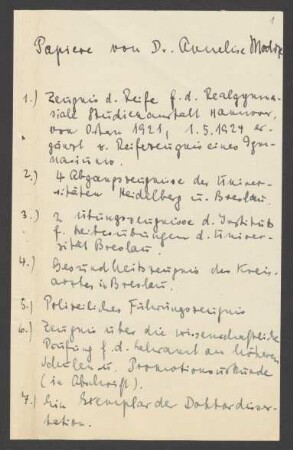 1
Papiere von Dr. Annelise Modrze
1.) Zeugnis d. Reife f. d. Realgymna-
siale Studienanstalt Hannover,
von Ostern 1921, 1.5.1924 er-
gänzt z. Reifezeugnis eines Gym-
nasiums.
2.) 4 Abgangszeugnisse der Univer-
sitäten Heidelberg u. Breslau.
3.) 2 Übungszeugnisse d. Instituts
f. Leibesübungen d. Univer-
sität Breslau.
4.) Gesundheitszeugnis des Kreis-
arztes in Breslau.
5.) Polizeiliches Führungszeugnis
6.) Zeugnis über die wissenschaftliche
Prüfung f. d. Lehramt an höheren
Schulen u. Promotionsurkunde
(in Abschrift).
7.) Ein Exemplar der Doktordisser-
tation.